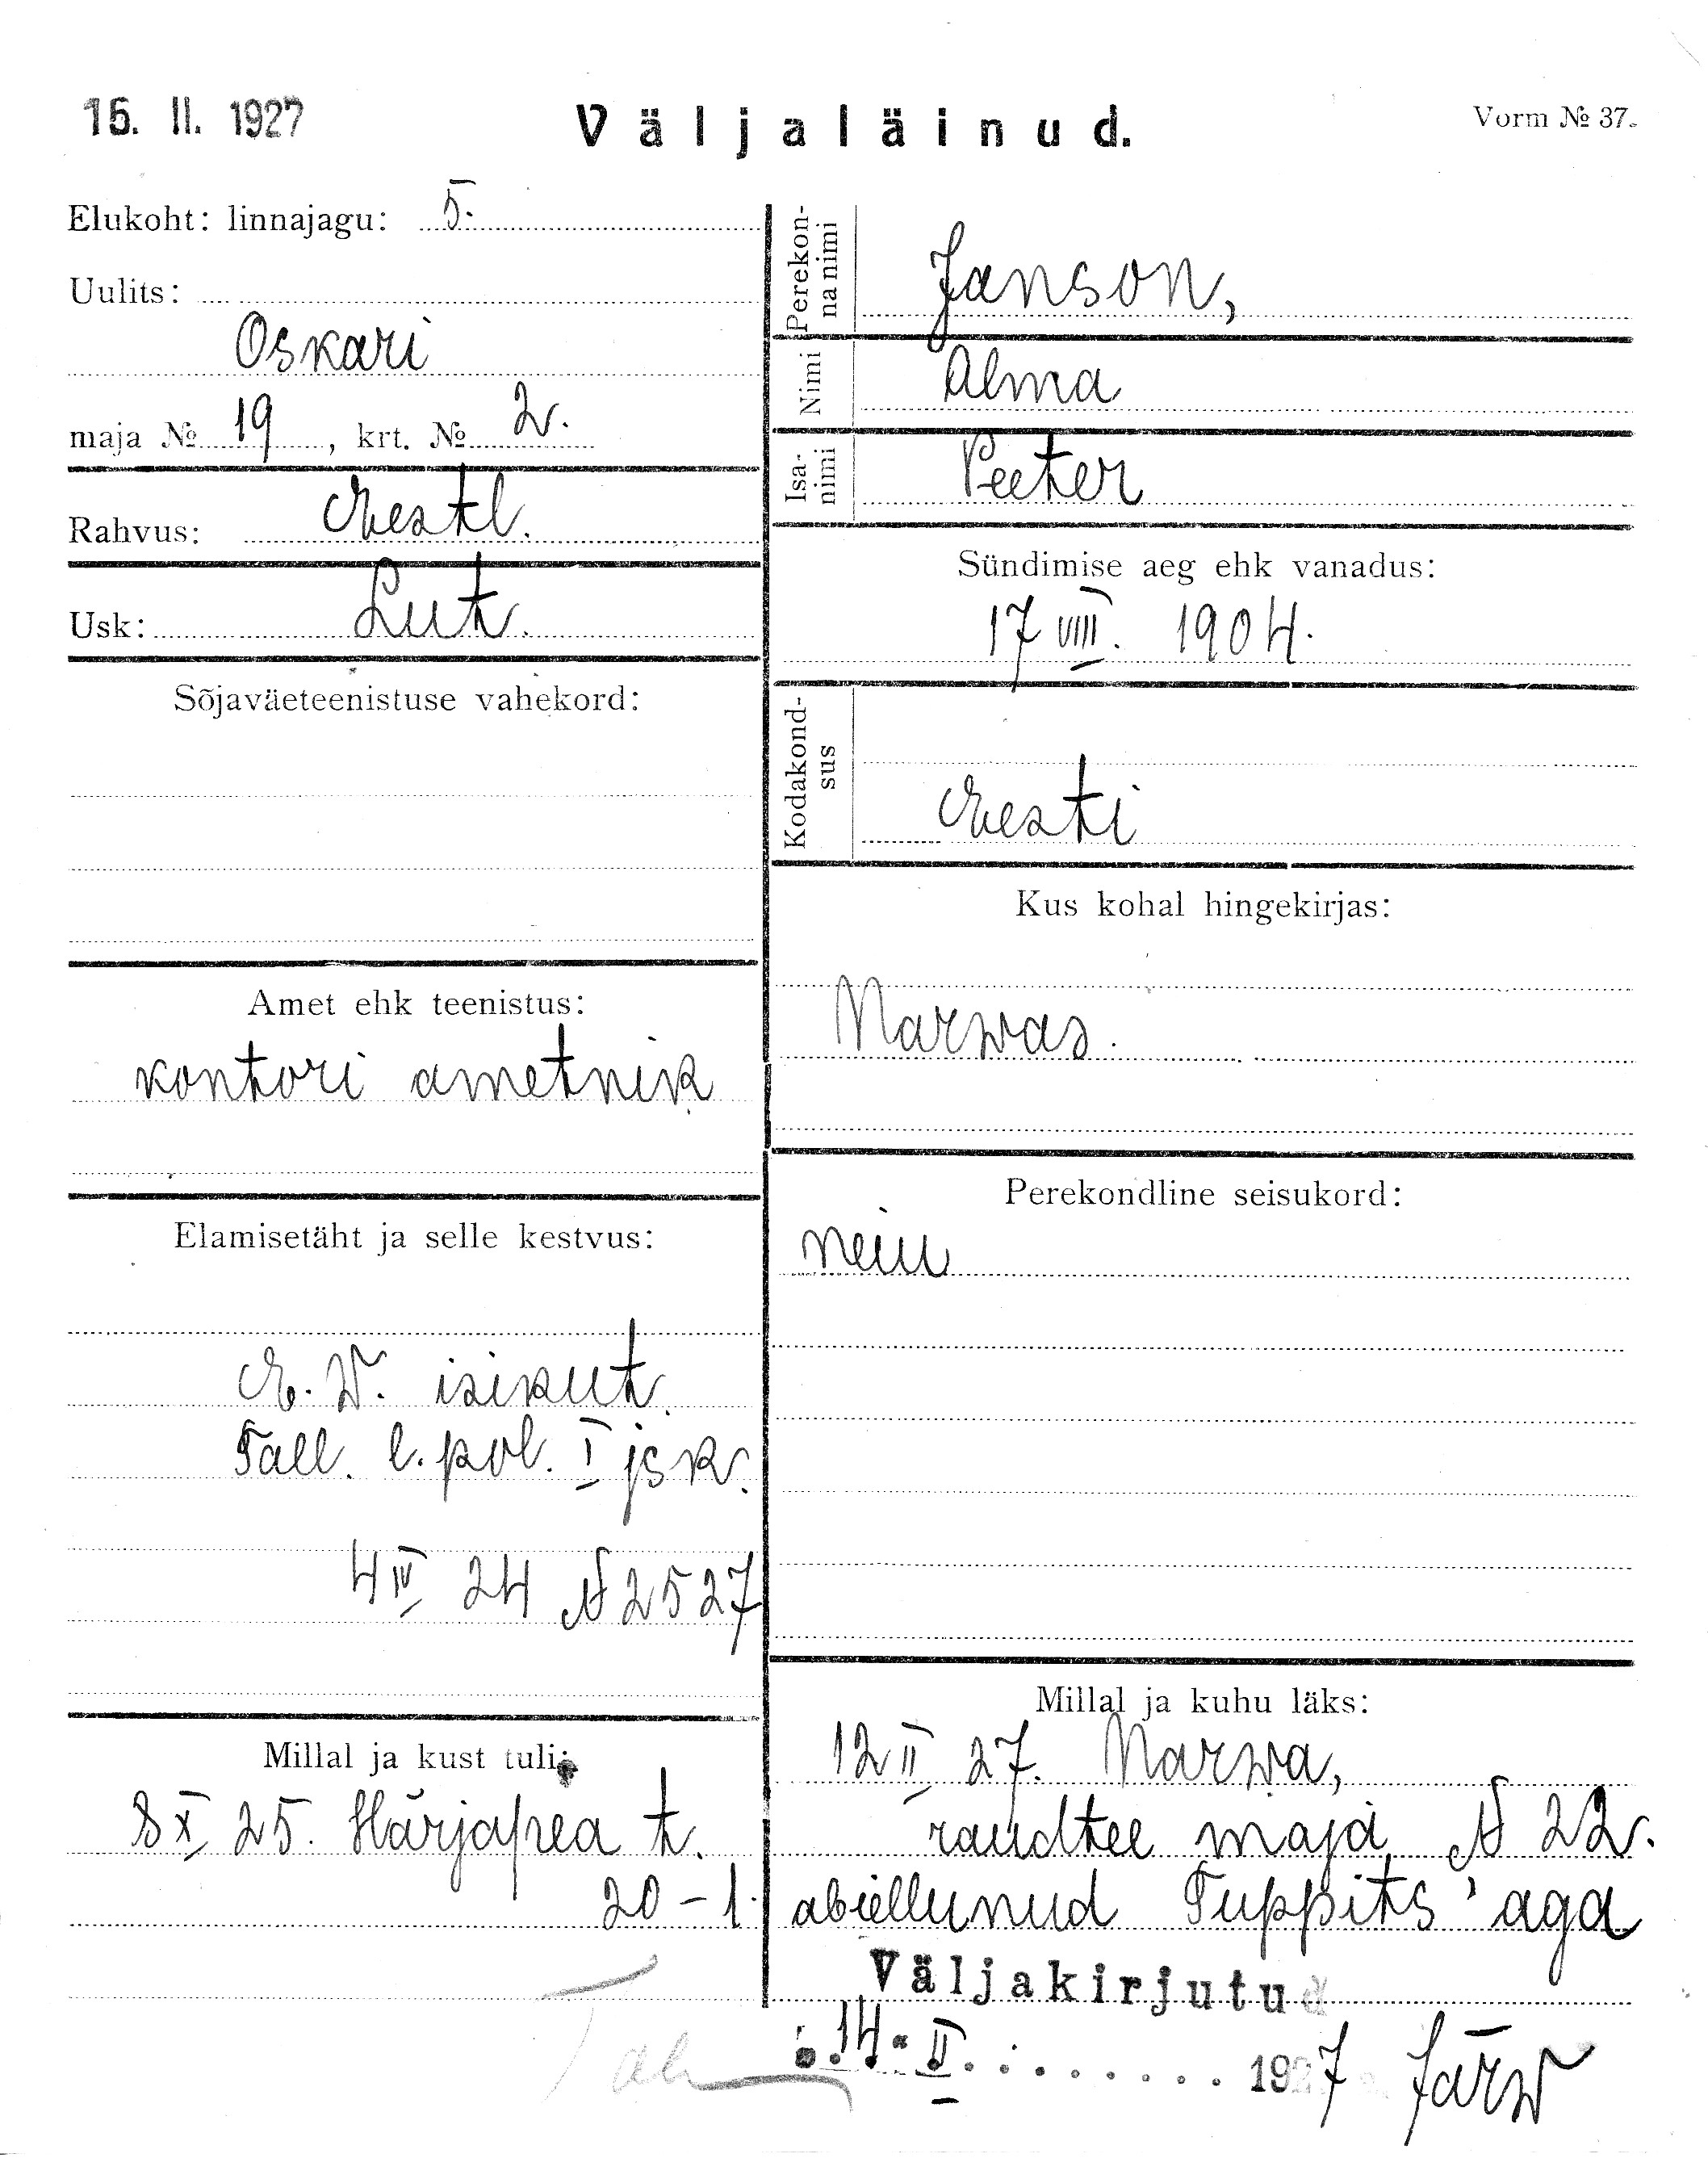 15. II. 1927
Väljaläinud.
Vorm № 37.
Elukoht: linnajagu: 5.
Uulits:
Oskari
maja № 19, krt. № 2.
Rahvus: Eestl.
Usk: Lut.
Sõjaväeteenistuse vahekord:
Amet ehk teenistus:
kontori ametnik
Elamisetäht ja selle kestvus:
E. W. isikut.
Tall. l. pol. I jsk.
4 IV 24 № 2527
Millal ja kust tuli:
8 X 25. Härjapea t.
20-1.
Perekon-
na nimi
Janson,
Nimi
Alma
Isa-
nimi
Peeter
Sündimise aeg ehk vanadus:
17 VIII. 1904.
Kodakond-
sus
Eesti
Kus kohal hingekirjas:
Narwas.
Perekondline seisukord:
neiu
Millal ja kuhu läks:
12 II 27. Narwa,
raudtee maja № 22.
abiellunud Tuppits'aga
Väljakirjutud
14. II. 1927 Järw